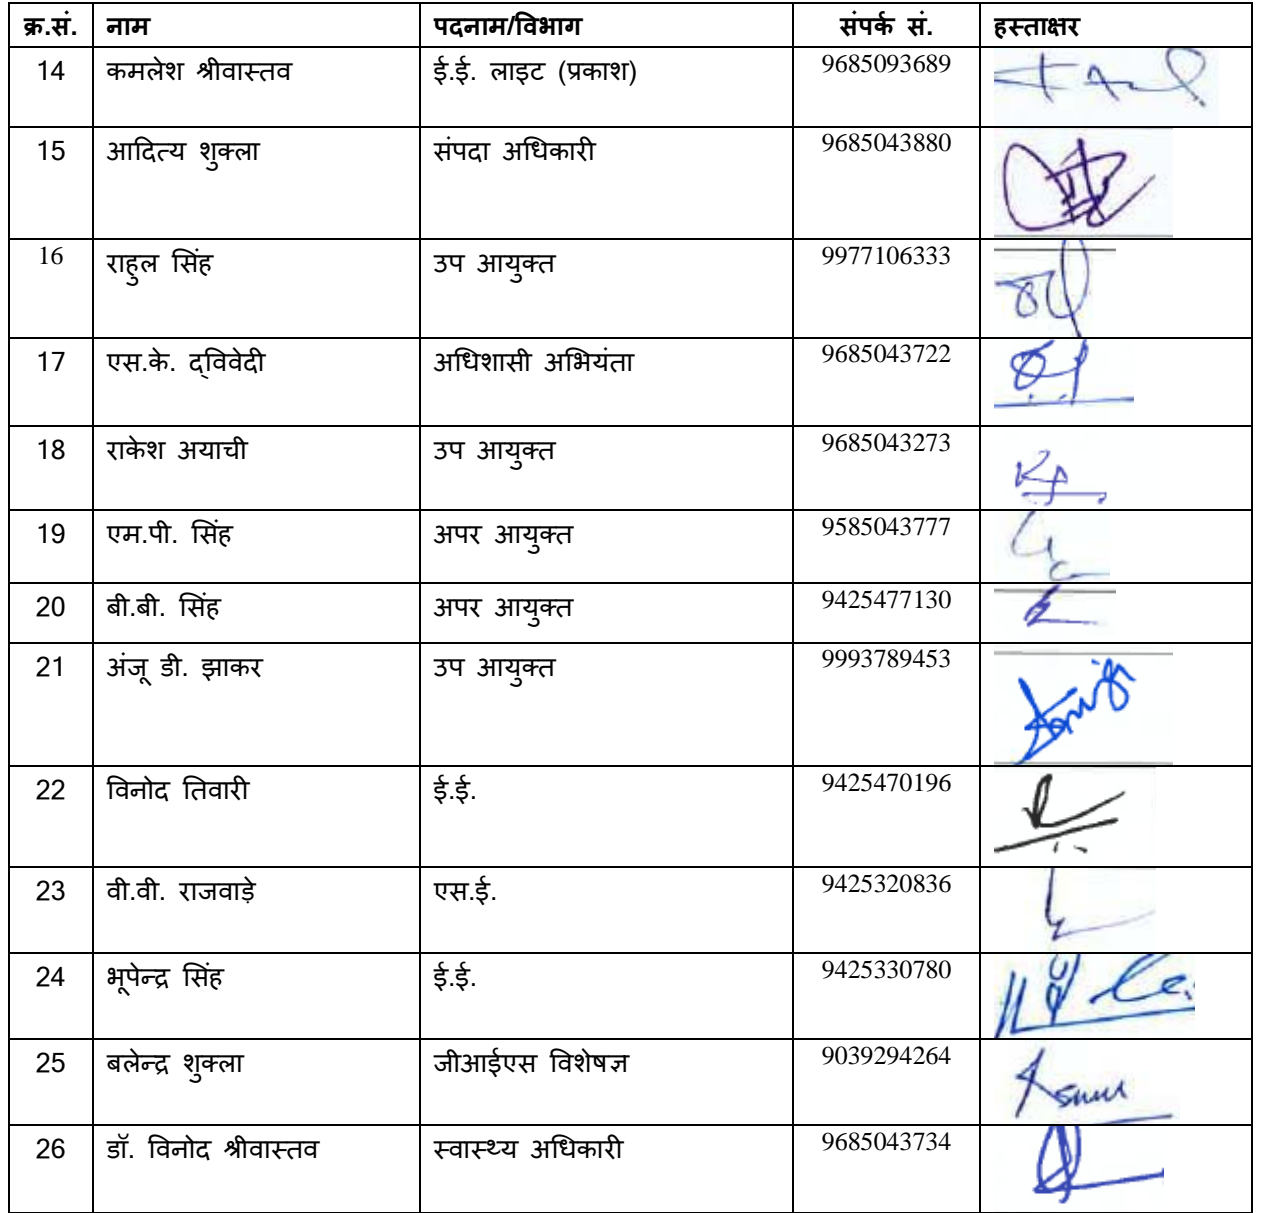 क्र.सं. नाम पदनाम/विभाग संपर्क सं. हस्ताक्षर
14 कमलेश श्रीवास्तव ई.ई. लाइट (प्रकाश) 9685093689
15 आदित्य शुक्ला संपदा अधिकारी 9685043880
16 राहुल सिंह उप आयुक्त 9977106333
17 एस.के. द्विवेदी अधिशासी अभियंता 9685043722
18 राकेश अयाची उप आयुक्त 9685043273
19 एम.पी. सिंह अपर आयुक्त 9585043777
20 बी.बी. सिंह अपर आयुक्त 9425477130
21 अंजू डी. झाकर उप आयुक्त 9993789453
22 विनोद तिवारी ई.ई. 9425470196
23 वी.वी. राजवाड़े एस.ई. 9425320836
24 भूपेन्द्र सिंह ई.ई. 9425330780
25 बलेन्द्र शुक्ला जीआईएस विशेषज्ञ 9039294264
26 डॉ. विनोद श्रीवास्तव स्वास्थ्य अधिकारी 9685043734